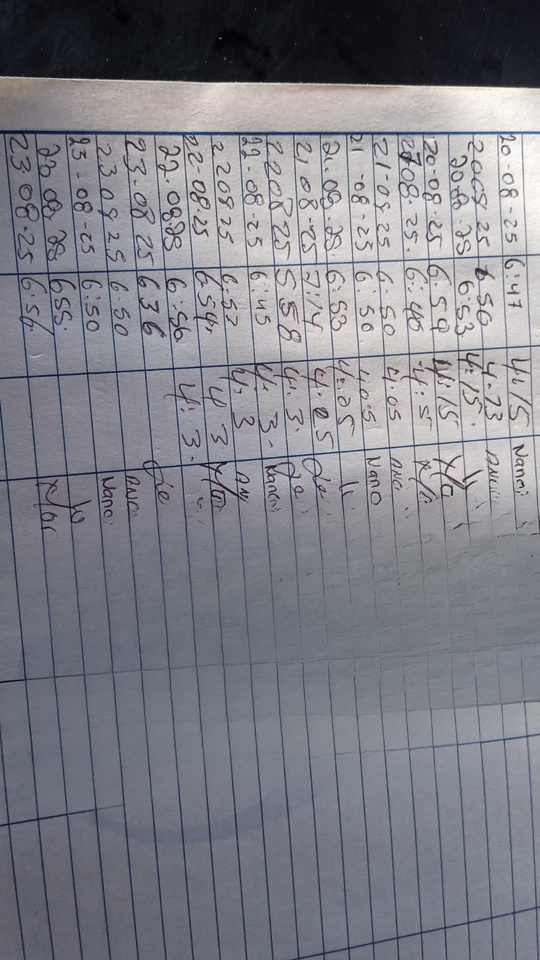 20-08-25 6:47 4:15 Nanni
20.08.25 6:50 4:23
20.08.25 6:53 4:15.
20-08-25 6.59 4:15
2108.25. 6:46 4:5
21-08-25 6.50 4.05
21-08-25 6 50 4.05 Nano
21.08.25. 6:53 4:05
21.08-25 7:14 4:05 Je
22 08 25 5 58 4: 3. Je
22-08-25 6:45 4: 3- Nanni
220825 6:52 4: 3 AN
22-08-25 6.54 4 3
22.0825 6:56 4: 3-
23.08 25 636 Je
230825 6.50 ANC
23-08-25 6:50 Nano
23 08 25 6 55.
23 08.25 6:56